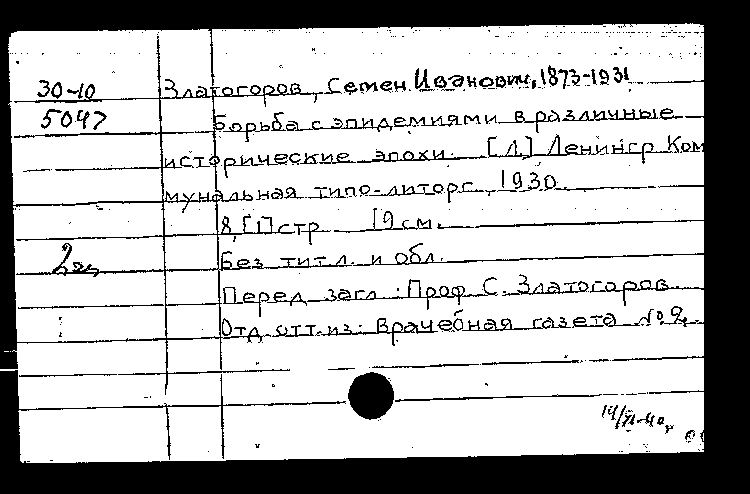 30-10
Златогоров, Семен Иванович, 1873-1931
5047
Борьба с эпидемиями в различные
исторические эпохи. [Л.] Ленингр Ком
мунальная типо-литогр., 1930.
8, [1] стр 19 см.
2 экз
Без тит. л. и обл.
Перед загл.: Проф С. Златогоров.
Отд. отт. из: Врачебная газета № 9,